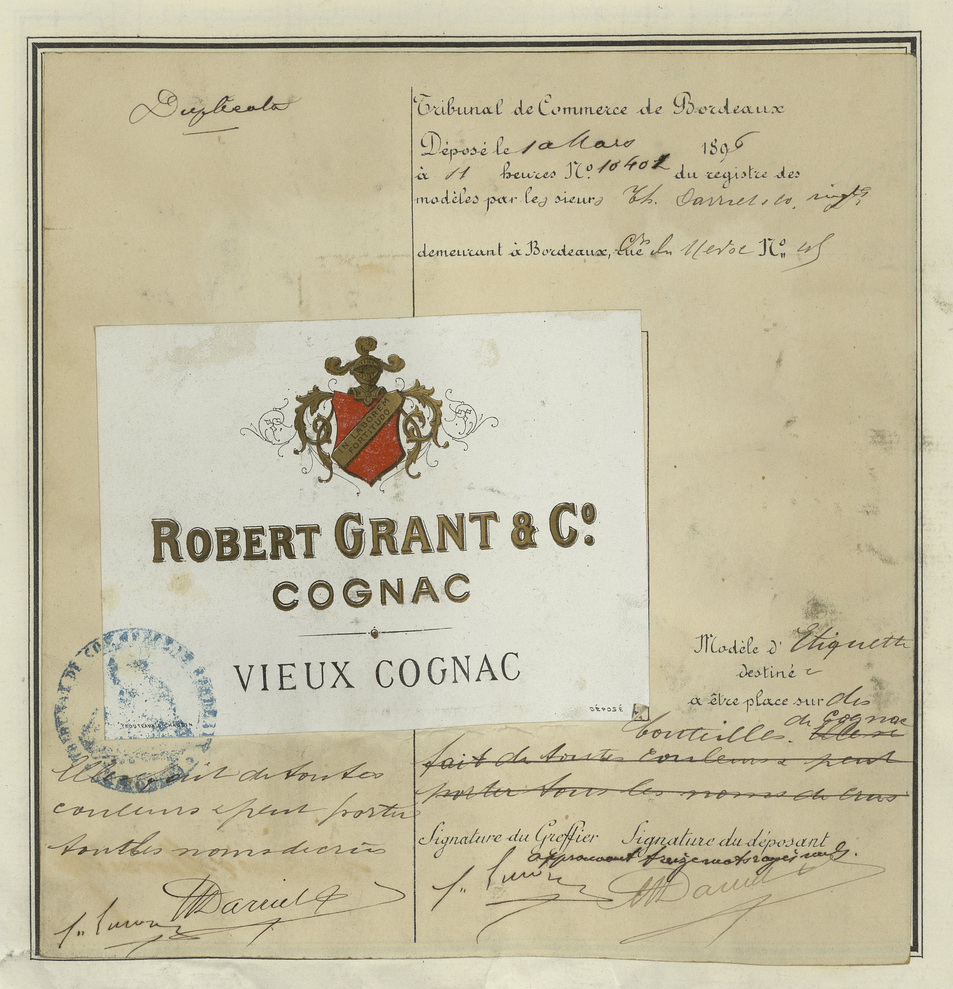 Duplicata
Tribunal de Commerce de Bordeaux
Déposé le 10 Mars 1896
à 11 heures Nº 10402 du registre des
modèles par les sieurs Th.
demeurant à Bordeaux, rue du Médoc Nº
IN LABOREM
FORTITUDO
ROBERT GRANT & Cº
COGNAC
VIEUX COGNAC
DÉPOSÉ
TRIBUNAL DE COMMERCE DE BORDEAUX
Modèle d'Etiquette
destiné e
à être place sur des
bouteilles de Cognac. Elle se
fait de toutes couleurs & peut
porter tous les noms de crus
Elle se fait de toutes
couleurs & peut porter
tous les noms de crûs
Signature du Greffier Signature du déposant
approuvant treize mots rayés nuls.